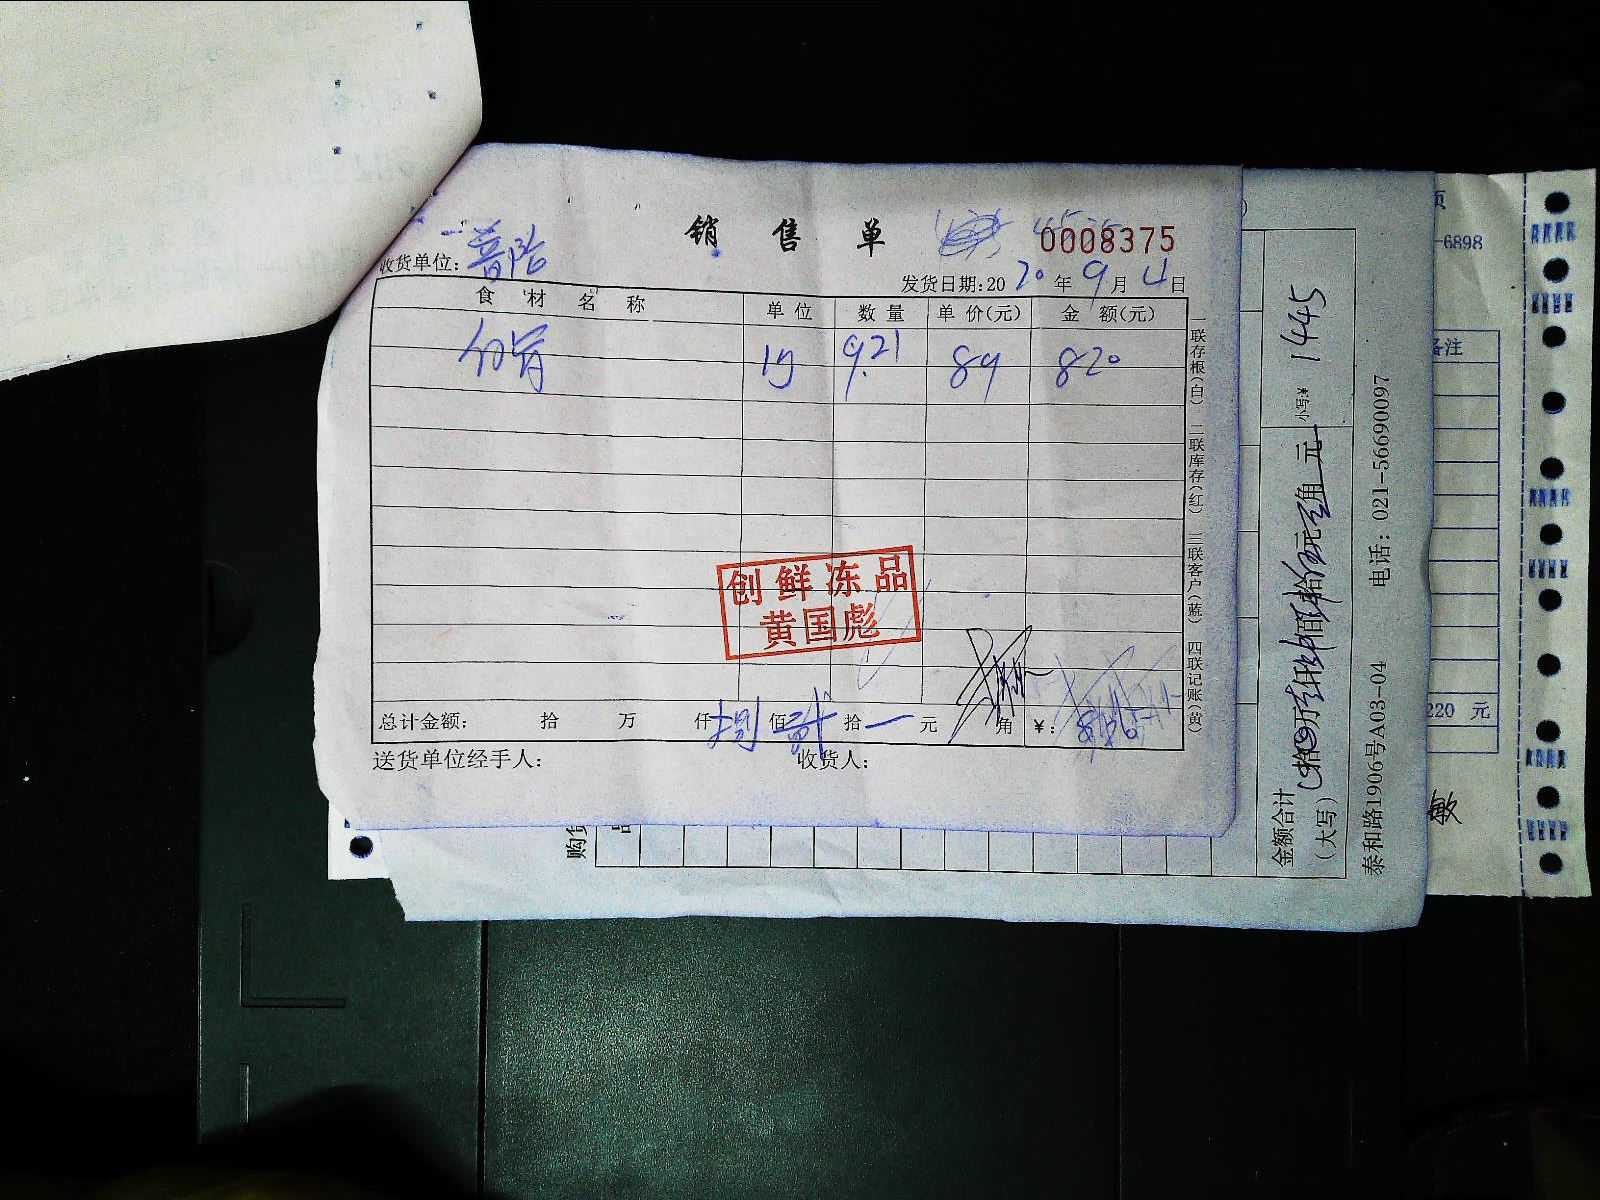 销售单
0008375
收货单位：普陀
发货日期：2020年9月4日
食材名称 单位 数量 单价(元) 金额(元)
19 9.21 89 820
创鲜冻品
黄国彪
总计金额： 拾 万 仟捌佰贰拾一元 角 ¥：820
送货单位经手人： 收货人：
一联存根(白) 二联库存(红) 三联客户(蓝) 四联记账(黄)
金额合计
(大写) 拾 万 仟 佰 拾 元 角 元 小写¥ 1445
泰和路1906号A03-04 电话：021-56690097
购货
品
页
-6898
备注
220 元
敏